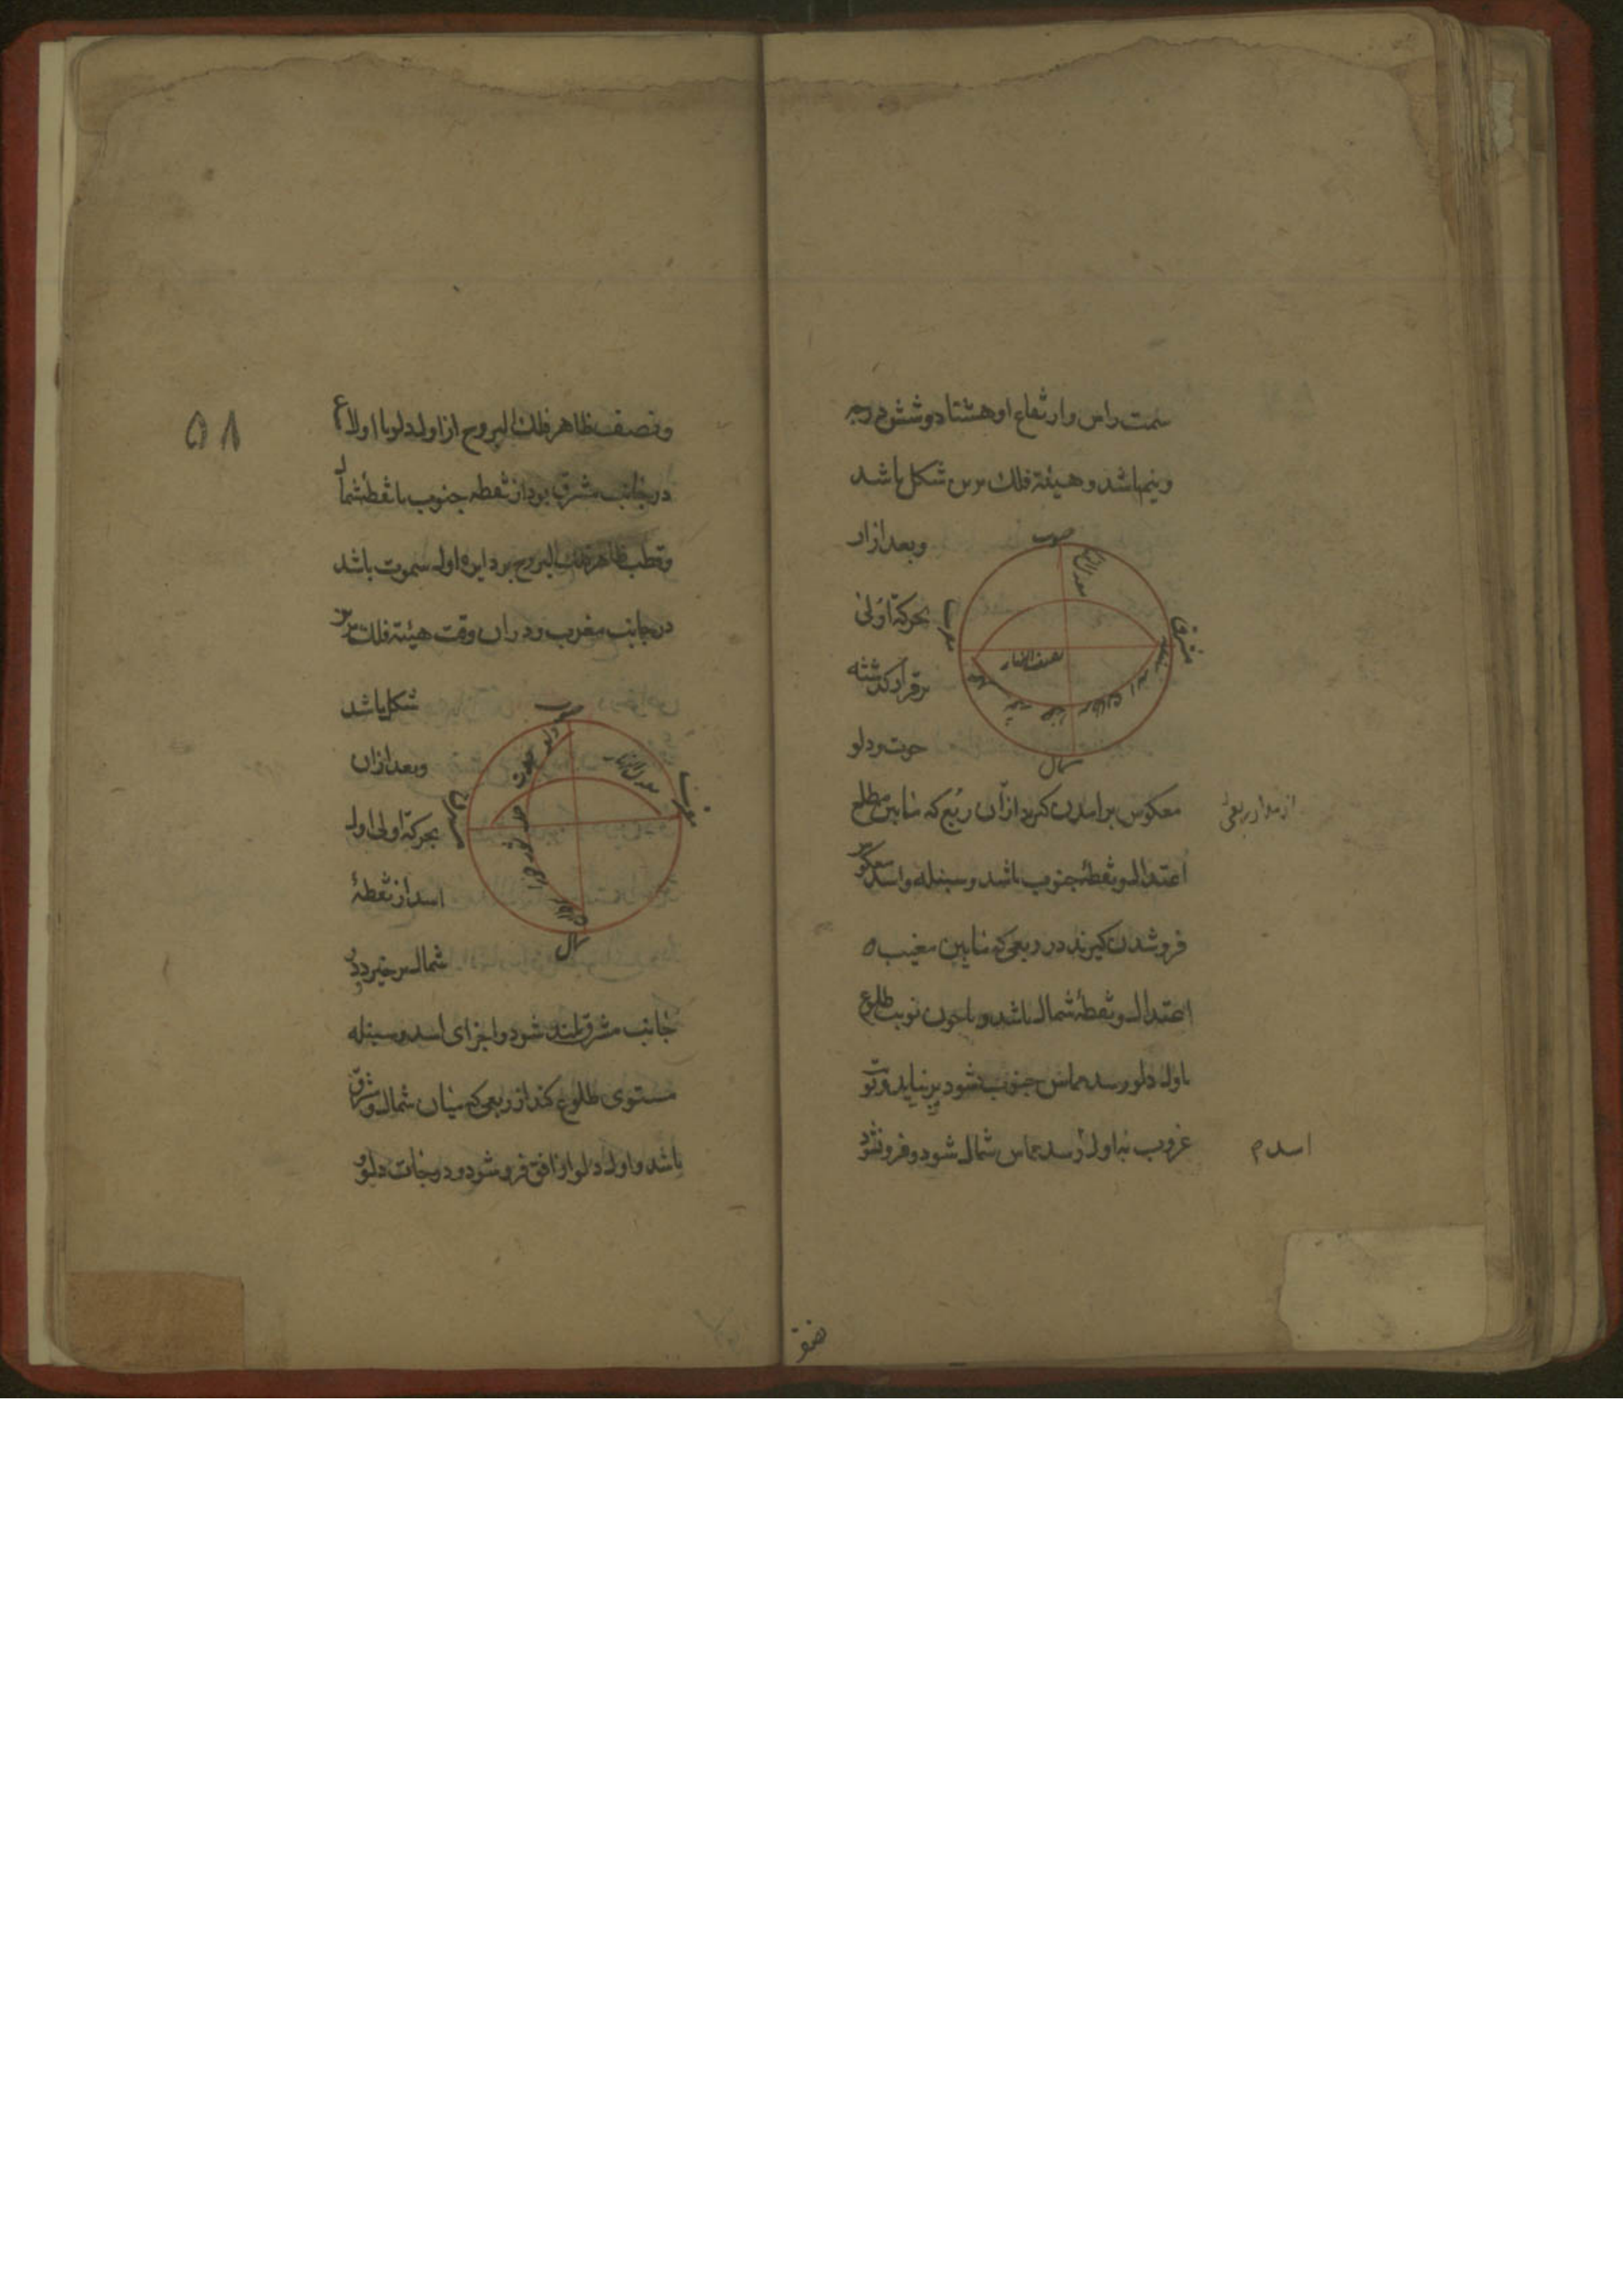 سمت راس وارتفاع او هشتاد و شش درجه
ونیم باشد وهیئة فلک برین شکل باشد
وبعد ازان
بحرکة اولی
برقرار گذشته
حوت ودلو
معکوس برامدن کیرد ازان ربع که مابین مطلع
اعتدال ونقطهٔ جنوب باشد وسنبله واسد معکوس
فروشدن کیرند در ربعی که مابین مغیب
اعتدال ونقطهٔ شمال باشد وباچون نوبت طلوع
باول دلو رسد مماس جنوب شود برنیاید ونوبت
غروب باول رسد مماس شمال شود وفرونشود
اسد
جنوب
معدل النهار
مشرق
مغرب
نصف النهار
شمال
۵۸
ونصف ظاهر فلک البروج از اول دلو تا اول
در جانب مشرق بود از نقطه جنوب تا نقطهٔ شمال
وقطب ظاهر فلک البروج بر دایره اول سموت باشد
در جانب مغرب ودران وقت هیئة فلک برین
شکل باشد
وبعد ازان
بحرکة اولی اول
اسد از نقطهٔ
شمال برخیزد ودر
جانب مشرق بلند شود واجزای اسد وسنبله
مستوی طلوع کند از ربعی که میان شمال ومشرق
باشد واول دلو از افق فرو شود ودرجات دلو و
جنوب
دلو حوت حمل ثور جوزا
معدل النهار
مغرب
مشرق
شمال